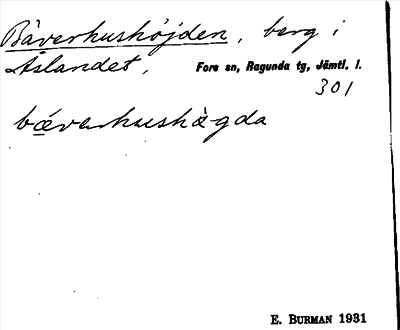 Bäverhushöjden, berg i
Åslandet, Fors sn, Ragunda tg, Jämtl. l.
301
bǽverhushὰgda
E. BURMAN 1931